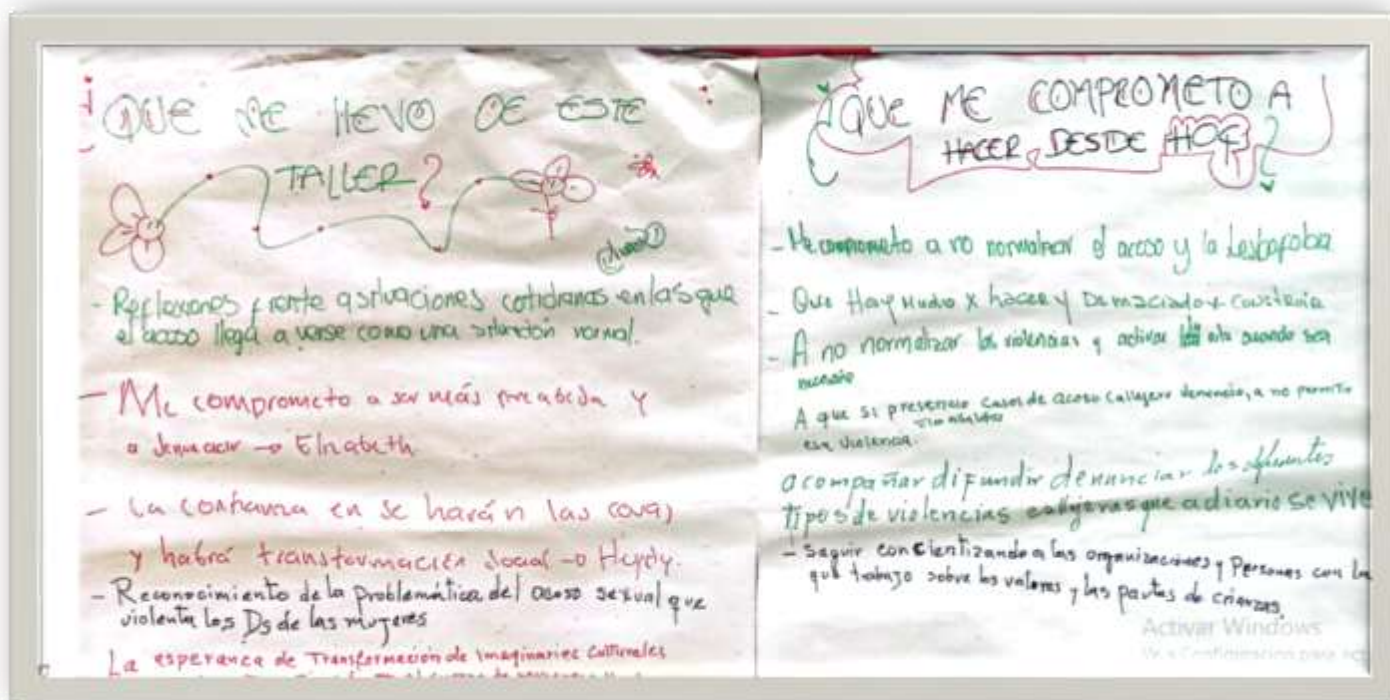 ¿QUE ME LLEVO DE ESTE
TALLER?
- Reflexiones frente a situaciones cotidianas en las que
el acoso llega a verse como una situación normal.
- Me comprometo a ser más
y
a denunciar → Elizabeth
- La confianza en se harán las cosas
y habrá transformación social → Heydy.
- Reconocimiento de la problemática del acoso sexual que
violenta los Ds de las mujeres
La esperanza de Transformación de Imaginarios Culturales
¿QUE ME COMPROMETO A
HACER DESDE HOY?
- Me comprometo a no normalizar el acoso y la Lesbofobia
- Que Hay Mucho x hacer y Demaciado x
- A no normalizar las violencias y activar ruta cuando sea
necesario
A que si presencio casos de acoso callejero denuncio, a no permitir
esa violencia.
acompañar difundir denunciar los diferentes
tipos de violencias callejeras que a diario se vive
- Seguir concientizando a las organizaciones y Personas con las
que trabajo sobre los valores y las pautas de crianzas.
Activar Windows
Ve a Configuración para